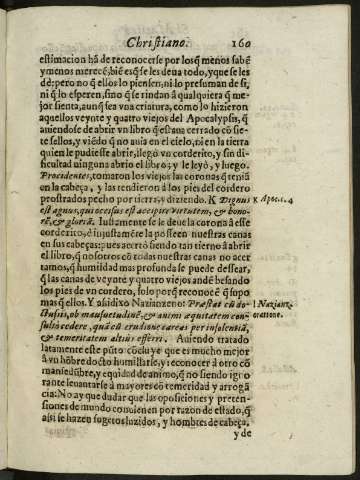 Christiano. 160
estimacion hã de reconocerse por losq̃ menos sabẽ
y menos merecẽ; biẽ esq̃ se les deua todo, y que se les
dé; pero no q̃ ellos lo piensen, ni lo presuman de si,
ni q̃ lo esperen, sino q̃ se rindan à qualquiera q̃ me-
jor sienta, aunq̃ sea vna criatura, como lo hizieron
aquellos veynte y quatro viejos del Apocalypsis, q̃
auiendose de abrir vn libro q̃ estaua cerrado cõ sie-
te sellos, y viẽdo q̃ no auia en el cielo, ni en la tierra
quien le pudiesse abrir, llegó vn corderito, y sin di-
ficultad ninguna abrio el libro, y le leyò, y luego.
Procidentes, tomaron los viejos las coronas q̃ teniã
en la cabeça, y las tendieron à los pies del cordero
prostrados pecho por tierra, y diziendo. K Dignus K Apoc. 4
est agnus, qui occisus est accipere virtutem, & bono-
rẽ, & gloriã. Iustamente se le deue la corona à esse
corderito, è injustamẽte la posseen nuestras canas
en sus cabeças: pues acertó siendo tan tierno à abrir
el libro, q̃ nosotros cõ todas nuestras canas no acer
tamos, q̃ humildad mas profunda se puede dessear,
q̃ las canas de veynte y quatro viejos andẽ besando
los pies de vn cordero, solo porq̃ reconocẽ q̃ supo
mas q̃ ellos. Y assi dixo Nazianzeno: Præstat cũ do- l Nazianz.
ctus sis, ob mansuetudinẽ, & animi æquitatem con- oratione.
sultò cedere, quã cũ erudione careas per insolentiã,
& temeritatem altius efferri. Auiendo tratado
latamente este pũto cõcluye que es mucho mejor
à vn hõbre docto humillarse, y reconocer à otro cõ
mansedũbre, y equidad de animo, q̃ no siendo igno
rante leuantarse à mayores cõ temeridad y arrogã
cia: No ay que dudar que las oposiciones y preten-
siones de mundo consienen por razon de estado, q̃
assi se hazen sugetos luzidos, y hombres de cabeça,
y de